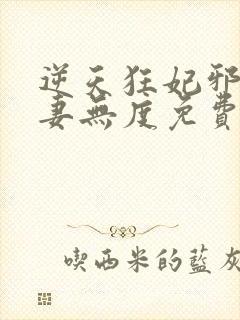 逆天狂妃邪
妻無度免費
喫西米的藍灰